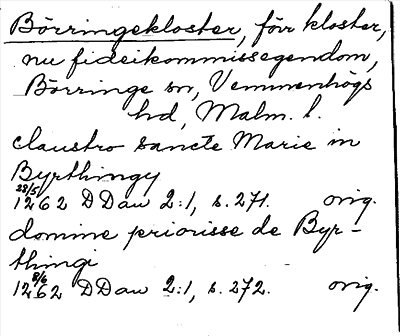 Börringekloster, förr kloster,
nu fideikommissegendom,
Börringe sn, Vemmenhögs
hd, Malm. l.
claustro sancte Marie in
Byrthingy
28/5 1262 DDan 2:1, s. 271. orig.
domine priorisse de Byr-
thingi
8/6 1262 DDan 2:1, s. 272. orig.